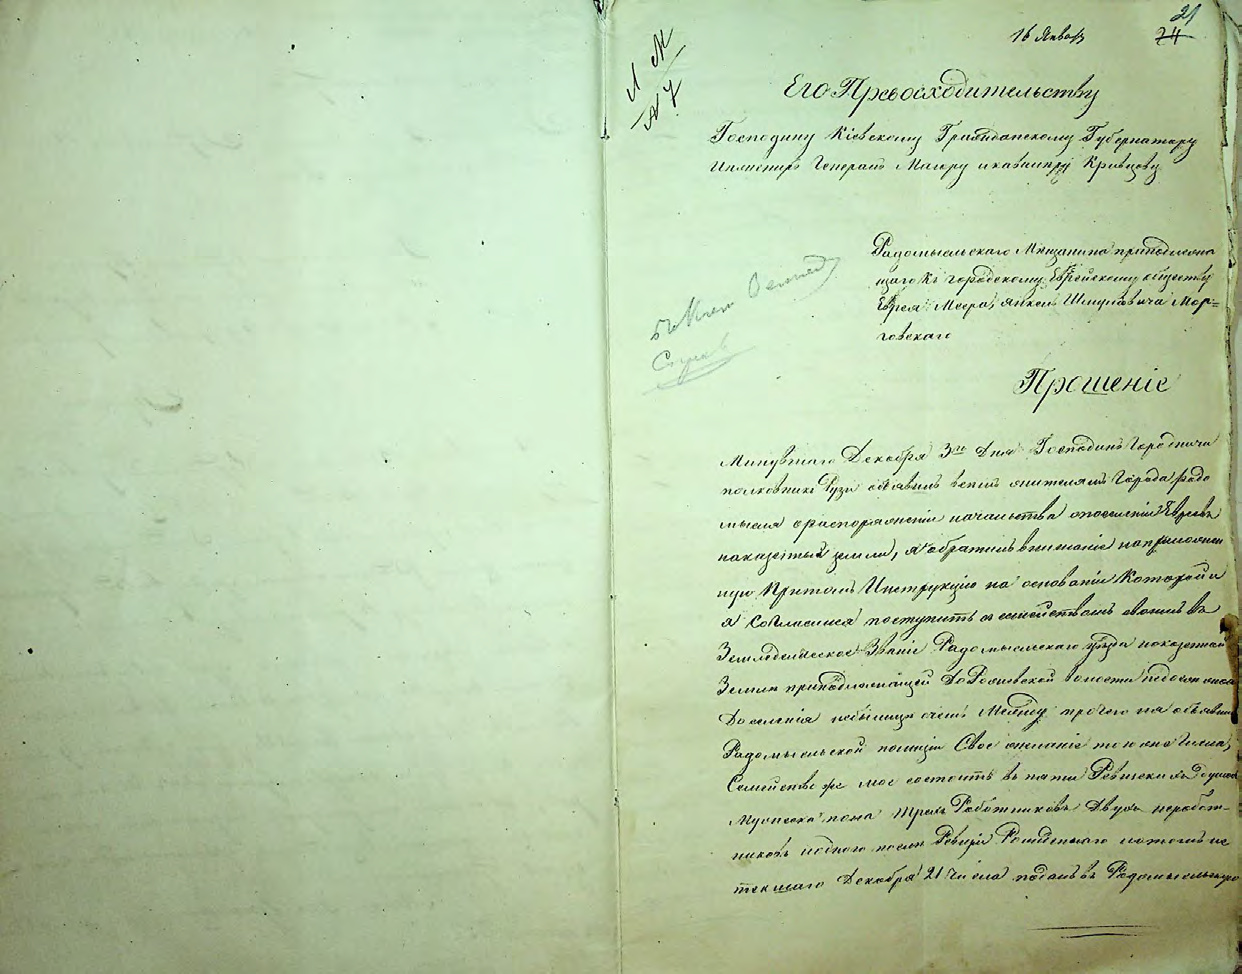 21
24
16 Января
Его Превосходительству
Господину Кіевскому Гражданскому Губернатору
Инженеръ Генералъ Маіору и кавалеру Кривцову
Радомысльскаго Мѣщанина принадлежа
щаго къ городскому Еврейскому обществу
Еврея Меера, Янкель Шмулевича Мор=
говскаго
Прошеніе
Минувшаго Декабря 3го Дня Господинъ Городничій
полковникъ объявилъ всемъ жителямъ Города Радо
мысля о распоряженіи начальства о поселеніи Евреевъ
на казенной земли, я обративъ вниманіе на приложен
ную Притомъ Инструкцію на основаніи Которой и
я Согласился поступить съ семействомъ своимъ въ
Земледельческое Званіе Радомысльскаго уѣзда на казенной
Земли принадлежащей До волости
До селенія прочего на объявилъ
Радомысльской полиціи Свое желаніе
Семейство же мое состоитъ въ пяти Ревискихъ Душахъ
Мужеска пола трехъ Работниковъ Двухъ неработ-
никовъ и одного после Ревизіи Рожденнаго
текшаго Декабря 21 Числа подалъ въ Радомысльскую